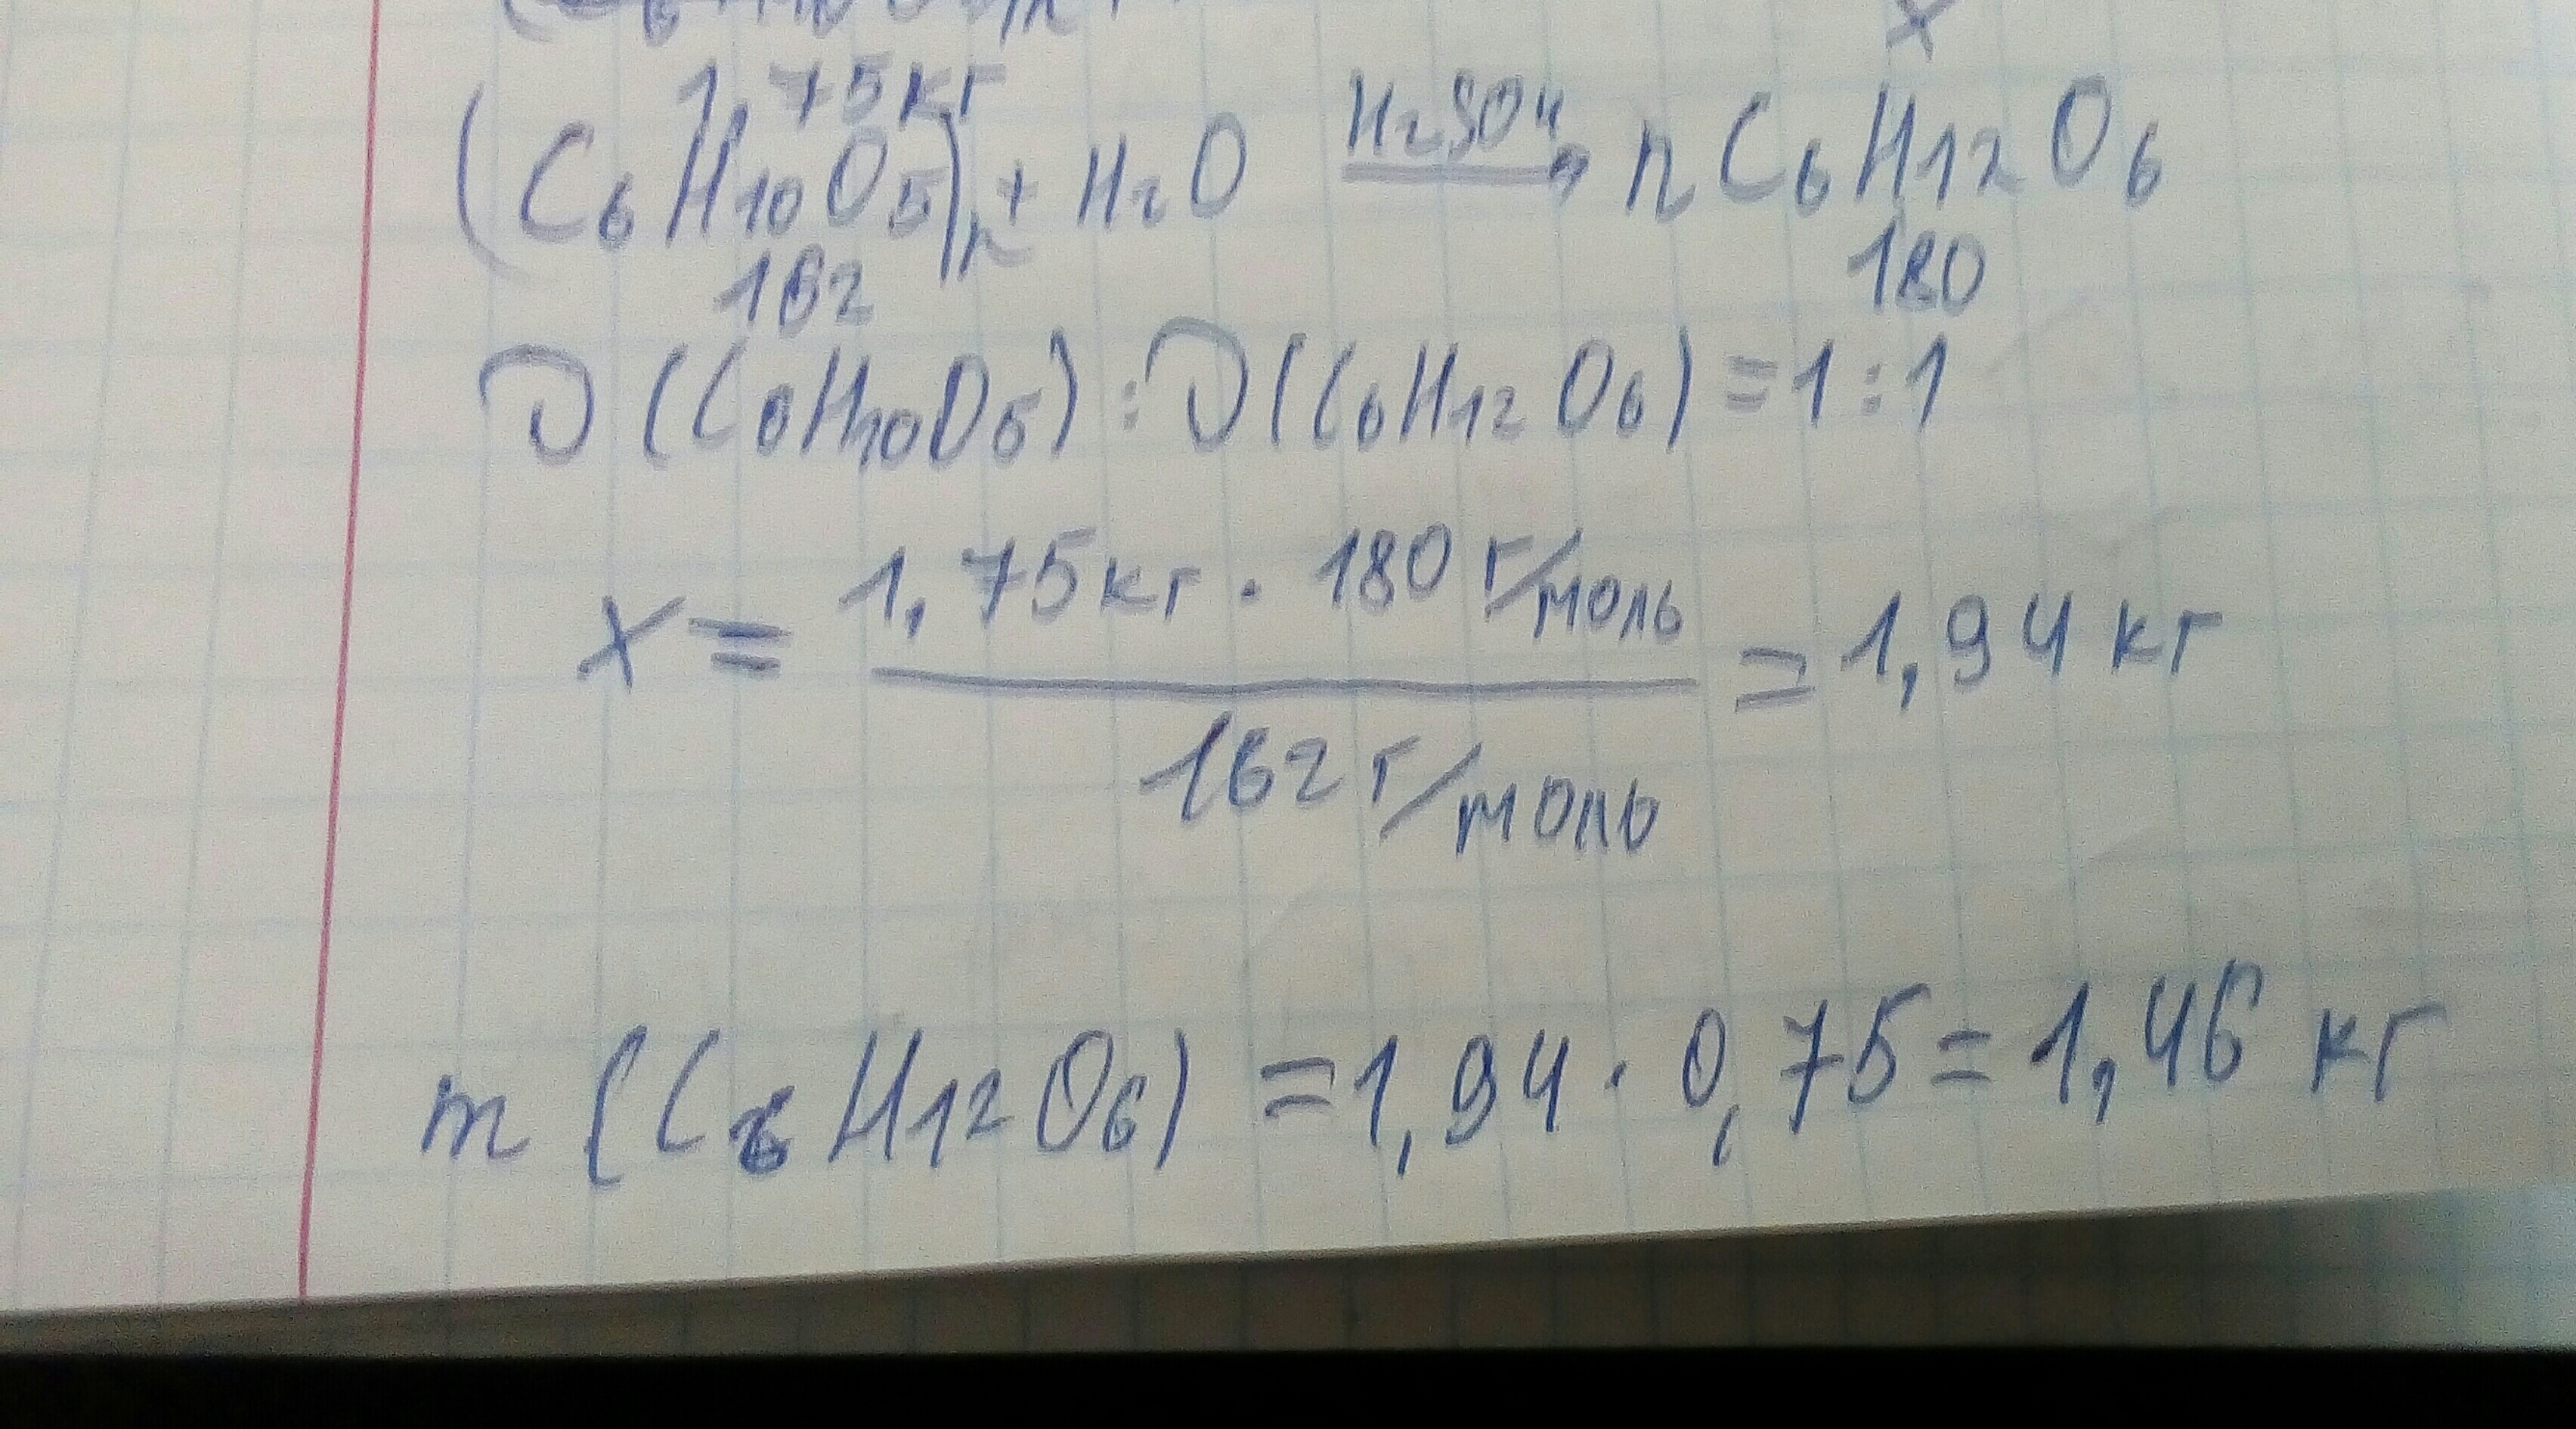 x
1,75кг
(C6H10O5)n + H2O H2SO4→ n C6H12O6
162 180
ν(C6H10O5) : ν(C6H12O6) = 1 : 1
x = 1,75кг · 180 г/моль / 162 г/моль = 1,94 кг
m (C6H12O6) = 1,94 · 0,75 = 1,46 кг